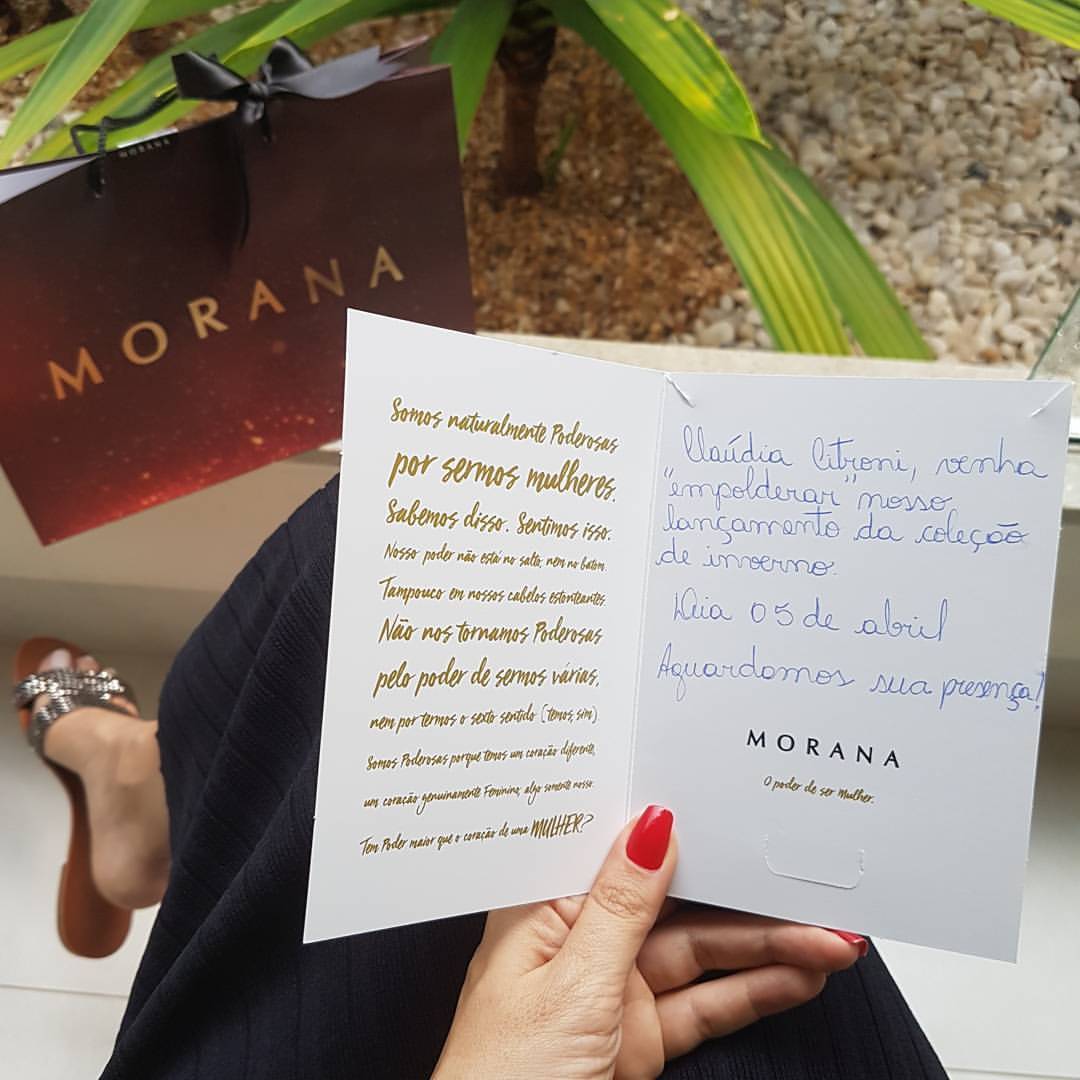 MORANA
MORANA
Somos naturalmente Poderosas
por sermos mulheres.
Sabemos disso. Sentimos isso.
Nosso poder não está no salto, nem no batom.
Tampouco em nossos cabelos estonteantes.
Não nos tornamos Poderosas
pelo poder de sermos várias,
nem por termos o sexto sentido (temos, sim).
Somos Poderosas porque temos um coração diferente,
um coração genuinamente Feminino, algo somente nosso.
Tem Poder maior que o coração de uma MULHER?
Claúdia Citroni, venha
"empolderar" nosso
lançamento da coleção
de inverno.
Dia 05 de abril
Aguardamos sua presença!
MORANA
O poder de ser Mulher.